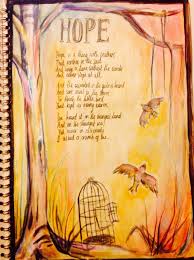 HOPE
Hope is a thing with feathers,
That perches in the soul
And sings a tune without the words
And never stops at all.
And the sweetest in the gale is heard
And sore must be the storm
the little bird
That kept so many warm.
I've heard it in the land
And on the sea
Yet never in extremity
It asked a crumb of me..